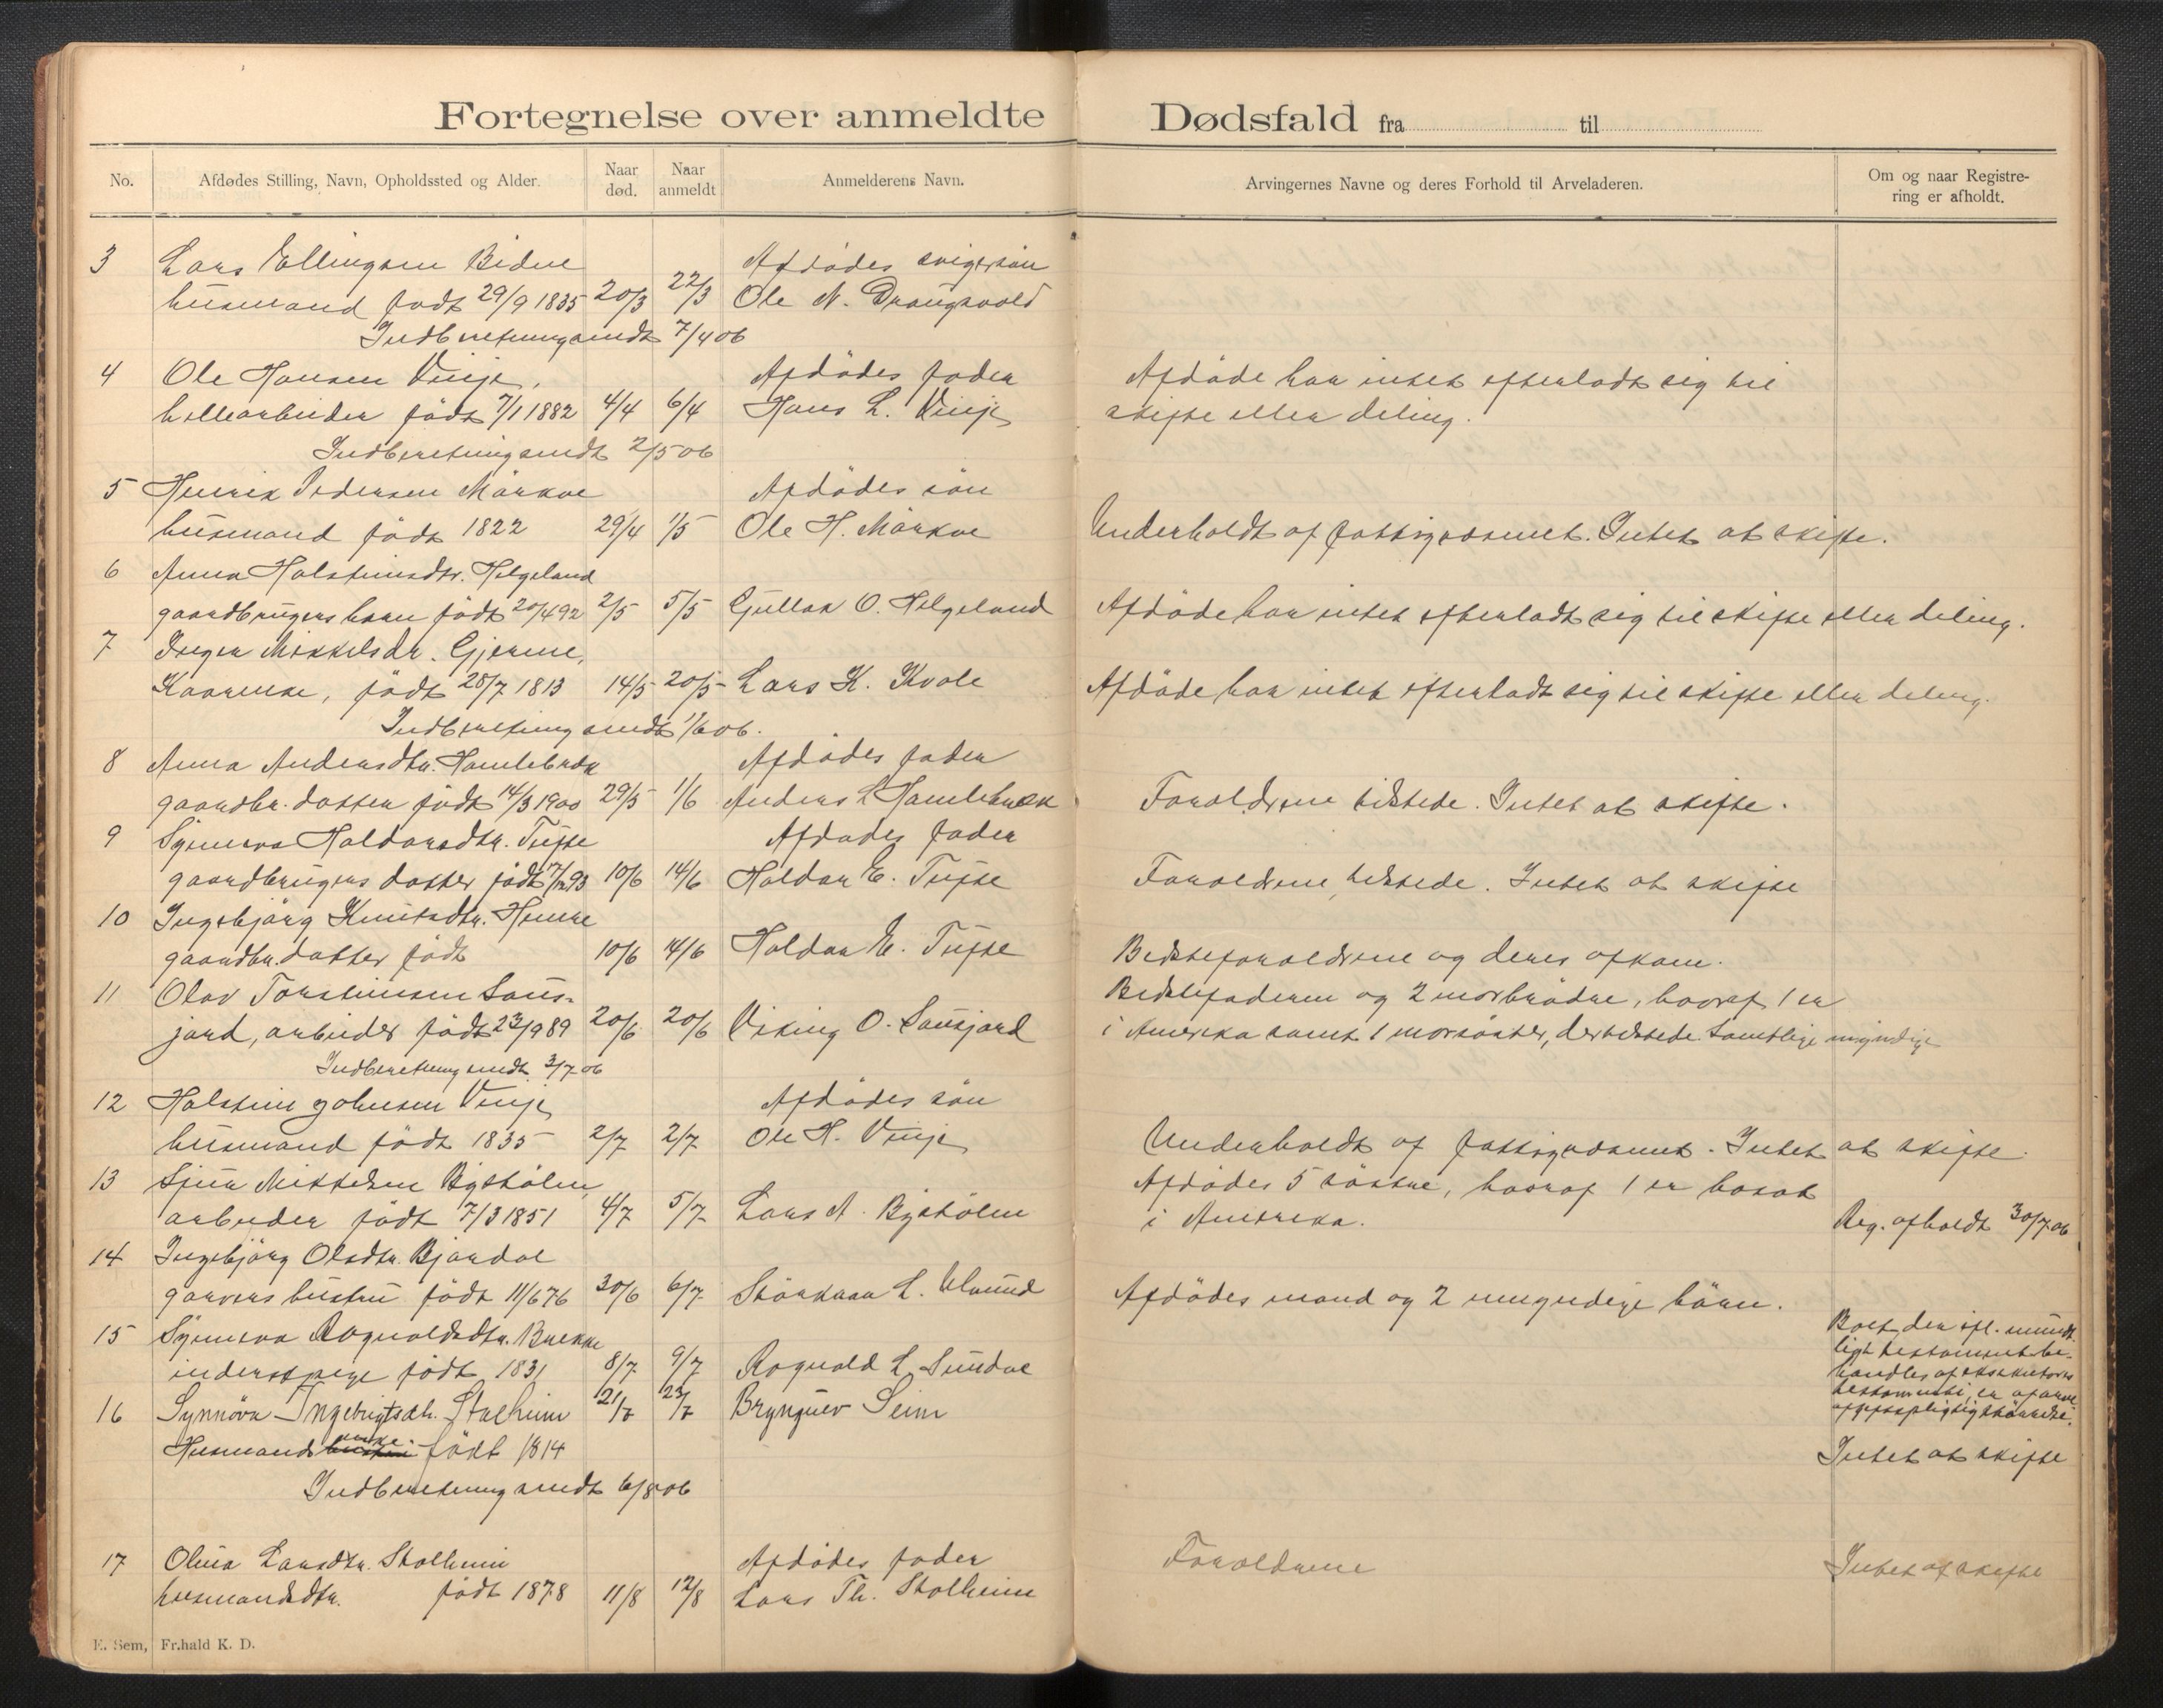 Fortegnelse over anmeldte Dødsfald fra til
No. Afdødes Stilling, Navn, Opholdssted og Alder. Naar død. Naar anmeldt Anmelderens Navn. Arvingernes Navne og deres Forhold til Arveladeren. Om og naar Registrering er afholdt.
3 Lars Ellingsen Bidne Afdødes svigersøn
husmand født 29/9 1835 20/3 22/3 Ole N. Draugsvold
Indberetning sendt 7/4 06
4 Ole Hansen Vinje, Afdødes fader Afdøde har intet efterladt sig til
født 7/1 1882 4/4 6/4 Hans L. Vinje skifte eller deling.
Indberetning sendt 2/5 06
5 Henrik Pedersen Mørkve Afdødes søn
husmand født 1822 29/4 1/5 Ole H. Mørkve Underholdt af fattigvæsenet. Intet at skifte.
6 Anna Halsteinsdtr. Helgeland
gaardbrugers barn født 20/4 92 2/5 5/5 Gullak O. Helgeland Afdøde har intet efterladt sig til skifte eller deling.
7 Inger Mikkelsdr. Gjerme,
Kaarenke, født 28/7 1813 14/5 20/5 Lars K. Kvale Afdøde har intet efterladt sig til skifte eller deling.
Indberetning sendt 1/6 06.
8 Anna Andersdtr. Hamlebrek Afdødes fader
gaardbr. datter født 14/3 1900 29/5 1/6 Anders L Hamlebrek Forældrene tilstede. Intet at skifte.
9 Synneva Haldorsdtr. Tufte Afdødes fader
gaardbrugers datter født 17/12 93 10/6 14/6 Haldor E. Tufte Forældrene tilstede. Intet at skifte
10 Ingebjørg Knutsdtr. Hemre
gaardbr. datter født 10/6 14/6 Haldor E. Tufte Bedsteforældrene og deres afkom.
11 Olav Torsteinsen Saus- Bedstefaderen og 2 morbrødre, hvoraf 1 er
jord, arbeider født 23/9 89 20/6 20/6 Viking O. Sausjord i Amerika samt 1 morsøster, der tilstede. Samtlige myndige
Indberetning sendt 3/7 06
12 Halstein Johnsen Vinje Afdødes søn
husmand født 1835 2/7 2/7 Ole H. Vinje Underholdt af fattigvæsenet. Intet at skifte.
13 Sjur Mikkelsen Bystølen, Afdødes 5 søstre, hvoraf 1 er bosat
arbeider født 7/3 1851 4/7 5/7 Lars A. Bystølen i Amerika. Reg. afholdt 30/7 06
14 Ingebjørg Olsdtr. Bjørdal
garvers hustru født 11/6 76 30/6 6/7 Størkaar L. Ulvund Afdødes mand og 2 umyndige børn.
15 Synneva Rognaldsdtr. Brekke Boet, der ifl. mundt-
født 1831 8/7 9/7 Rognald L. Sundve ligt testament be-
handles af
er
16 Synnøva Ingebrigtsdtr. Stalheim 21/7 23/7 Brynjulv Seim
Husmands enke født 1814 Intet at skifte
Indberetning sendt 6/8 06
17 Olina Larsdtr. Stalheim Afdødes fader Forældrene Intet at skifte
husmandsdtr. født 1878 11/8 12/8 Lars Th. Stalheim
E. Sem, Fr.hald K. D.